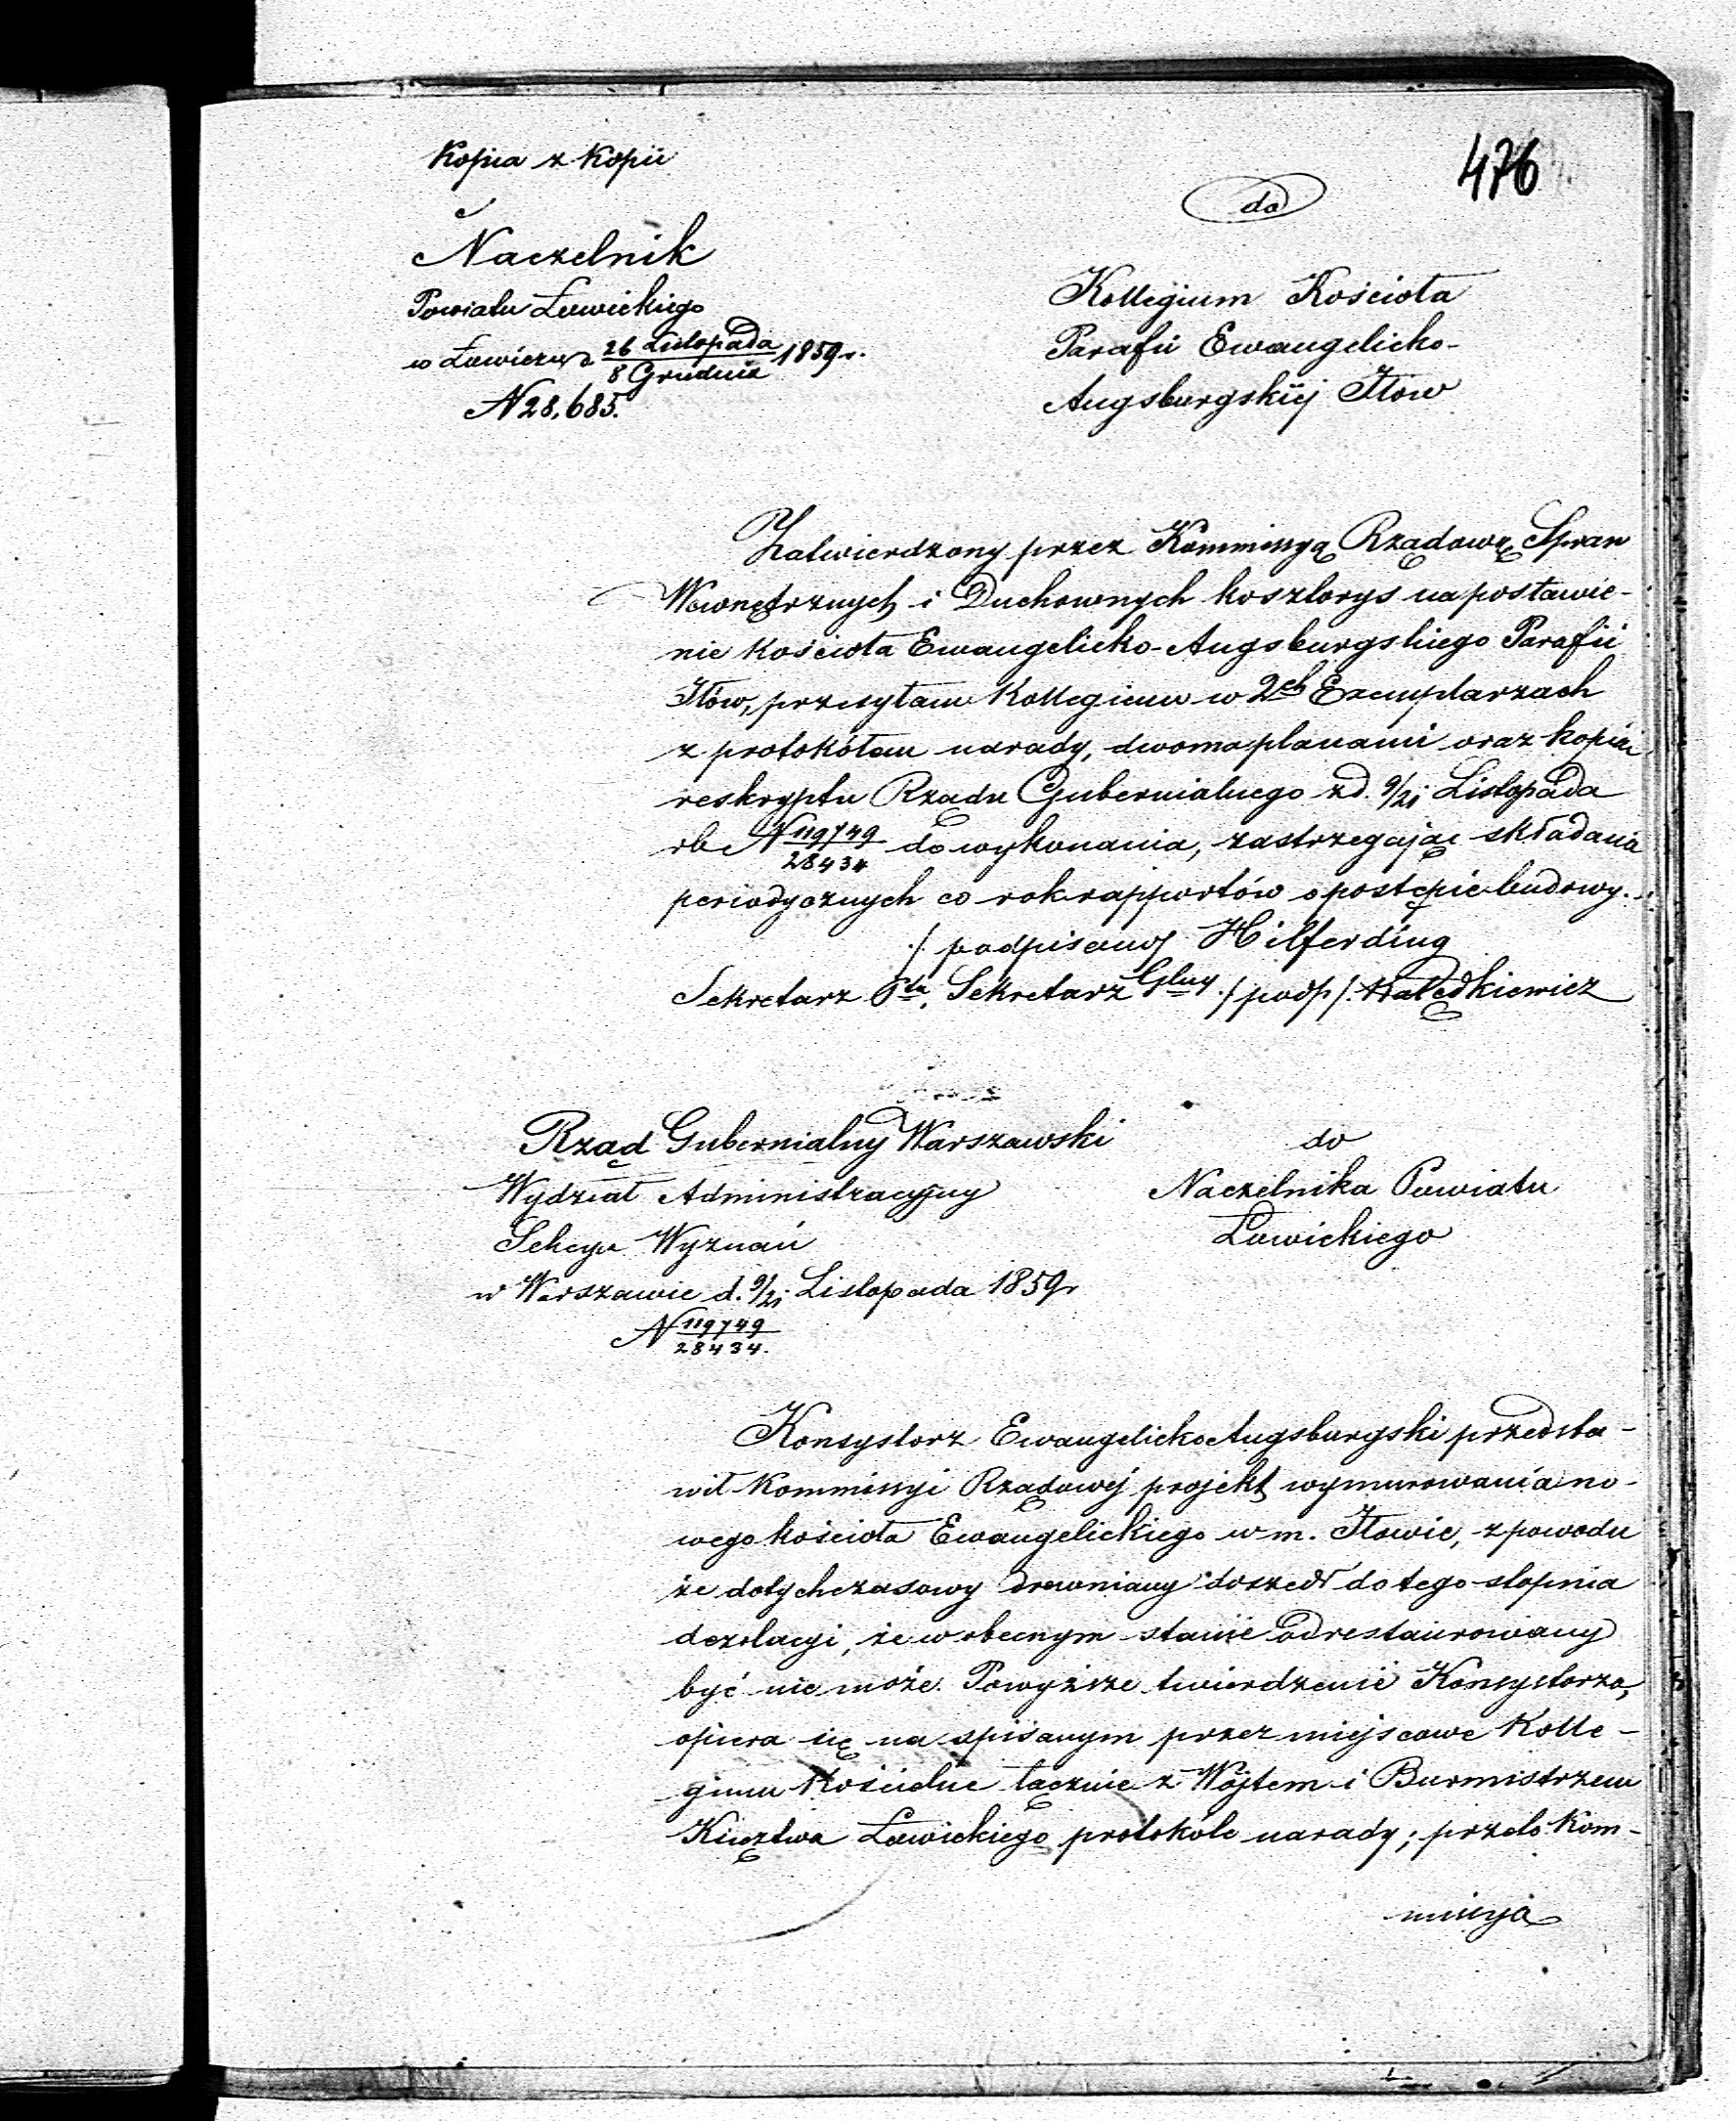 Kopia z Kopii
476
Naczelnik
Powiatu Łowickiego
w Łowiczu d 26 Listopada / 8 Grudnia 1859 r.
N 28,685.
do
Kollegium Kościoła
Parafii Ewangelicko-
Augsburgskiéj Iłów
Zatwierdzony przez Kommissyą Rządową Spraw
Wewnętrznych i Duchownych kosztorys na postawie-
nie Kościoła Ewangelicko-Augsburgskiego Parafii
Iłów, przesyłam Kollegium w 2ch Exemplarzach
z protokółem narady, dwoma planami oraz kopią
reskryptu Rządu Gubernialnego z d. 9/21 Listopada
rb N 119749/28434 do wykonania, zastrzegając składania
periodycznych co rok rapportów o postępie budowy.
/ podpisany / Hilferding
Sekretarz Ptu, Sekretarz Glny / podp /.
Rząd Gubernialny Warszawski
Wydział Administracyjny
Sekcya Wyznań
w Warszawie d. 9/21 Listopada 1859 r
N 119749/28434.
do
Naczelnika Powiatu
Łowickiego
Konsystorz Ewangelicko Augsburgski przedsta-
wił Kommissyi Rządowéj projekt wymurowania no-
wego kościoła Ewangelickiego w m. Iłowie, z powodu
że dotychczasowy drewniany doszedł do tego stopnia
dezolacyi, że w obecnym stanie odrestaurowany
być nie może. Powyższe twierdzenie Konsystorza,
opiera się na spisanym przez miejscowe Kolle-
gium Kościelne łącznie z Wójtem i Burmistrzem
Księztwa Łowickiego protokóle narady; przeto Kom-
missya